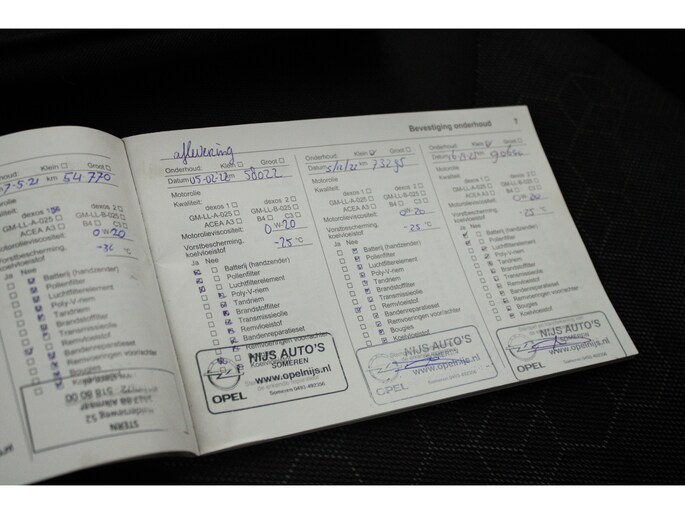 Bevestiging onderhoud 7
Groot
7-5-21 km 54770
dexos 1 dexos 2
GM-LL-A-025 GM-LL-B-025
ACEA A3 B4 C3
Motorolieviscositeit: 0 W-20
Vorstbescherming, koelvloeistof -30 °C
Ja Nee
Batterij (handzender)
Pollenfilter
Luchtfilterelement
Poly-V-riem
Tandriem
Brandstoffilter
Transmissieolie
Remvloeistof
Bandenreparatieset
Remvoeringen voor/achter
Bougies
Koelvloeistof
STERN
aflevering
Onderhoud: Klein Groot
Datum 05-02-22 km 58022
Motorolie
Kwaliteit:
dexos 1 dexos 2
GM-LL-A-025 GM-LL-B-025
ACEA A3 B4 C3
Motorolieviscositeit: 0 W-20
Vorstbescherming, koelvloeistof -25 °C
Ja Nee
Batterij (handzender)
Pollenfilter
Luchtfilterelement
Poly-V-riem
Tandriem
Brandstoffilter
Transmissieolie
Remvloeistof
Bandenreparatieset
Remvoeringen voor/achter
NIJS AUTO'S
SOMEREN
www.opelnijs.nl
OPEL
Someren 0493-492206
Onderhoud: Klein Groot
Datum 5/12/22 km 73295
Motorolie
Kwaliteit:
dexos 1 dexos 2
GM-LL-A-025 GM-LL-B-025
ACEA A3 B4 C3
Motorolieviscositeit: 0W-20
Vorstbescherming, koelvloeistof -25 °C
Ja Nee
Batterij (handzender)
Pollenfilter
Luchtfilterelement
Poly-V-riem
Tandriem
Brandstoffilter
Transmissieolie
Remvloeistof
Bandenreparatieset
Remvoeringen voor/achter
Bougies
Koelvloeistof
NIJS AUTO'S
SOMEREN
www.opelnijs.nl
OPEL
Onderhoud: Klein Groot
Datum km
Motorolie
Kwaliteit:
dexos 1 dexos 2
GM-LL-A-025 GM-LL-B-025
ACEA A3 B4 C3
Motorolieviscositeit: 0W-20
Vorstbescherming, koelvloeistof -25 °C
Ja Nee
Batterij (handzender)
Pollenfilter
Luchtfilterelement
Poly-V-riem
Tandriem
Brandstoffilter
Transmissieolie
Remvloeistof
Bandenreparatieset
Remvoeringen voor/achter
Bougies
Koelvloeistof
NIJS AUTO'S
SOMEREN
www.opelnijs.nl
OPEL